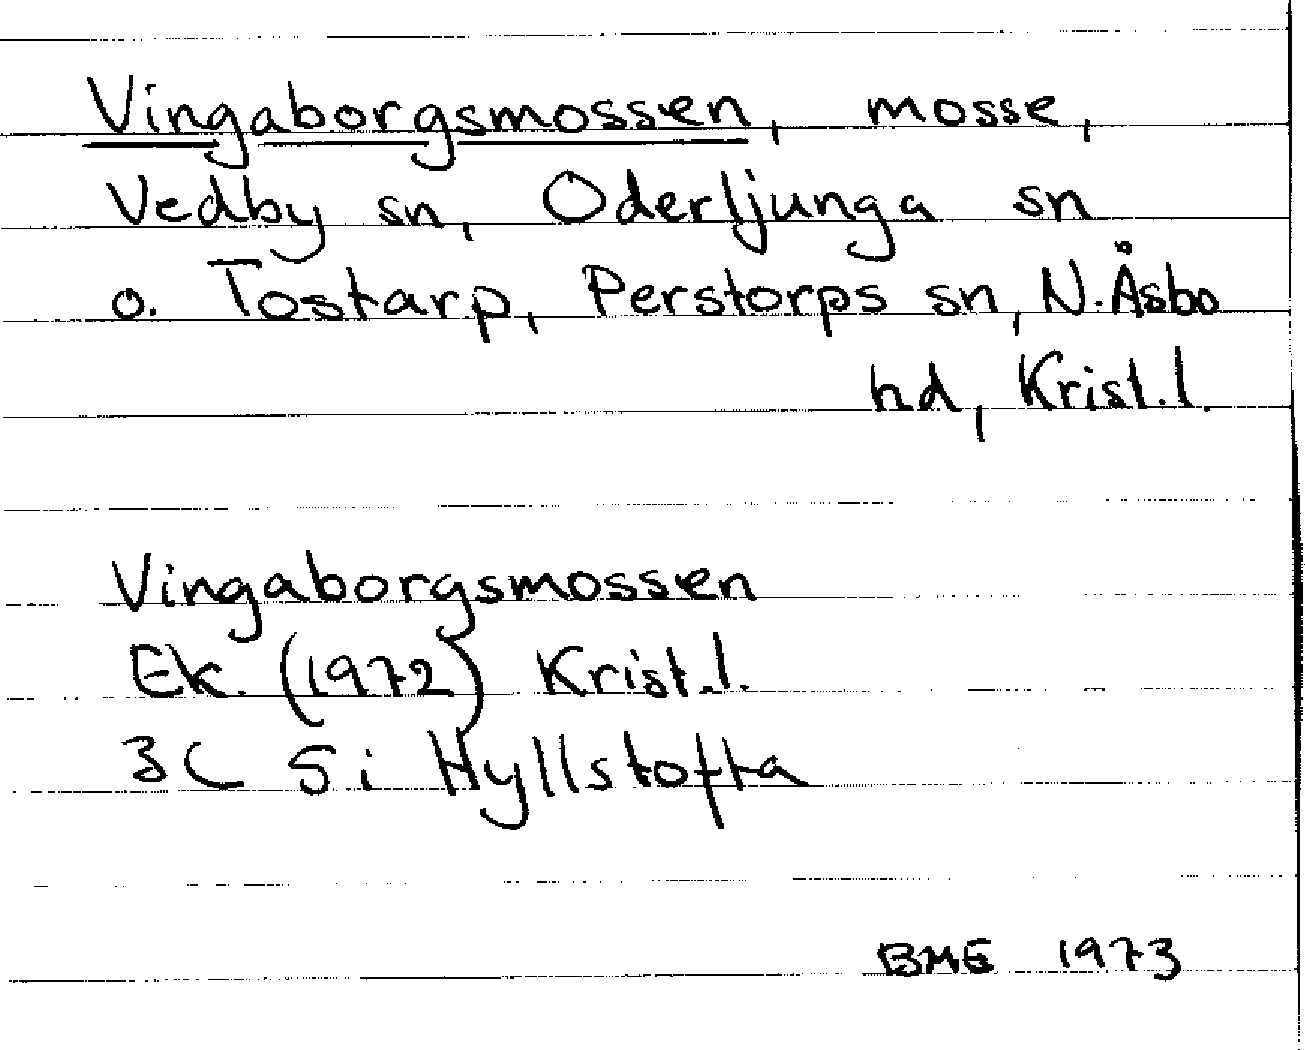 Vingaborgsmossen, mosse,
Vedby sn, Oderljunga sn
o. Tostarp, Perstorps sn, N. Åsbo
hd, Krist. l.
Vingaborgsmossen
Ek. (1972) Krist. l.
3C 5i Hyllstofta
BME 1973